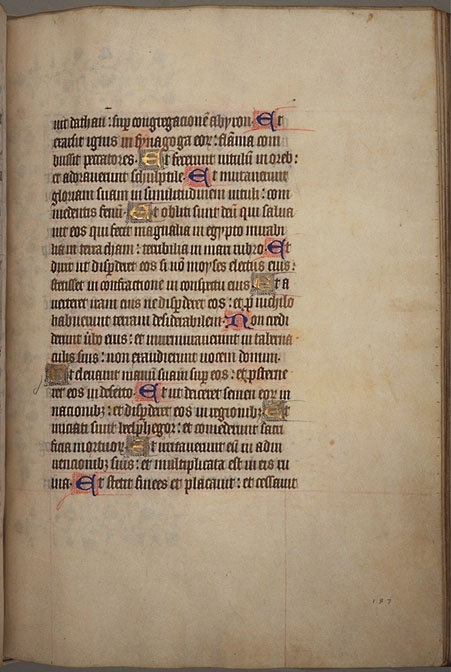 uit dathan : sup congregacionē abyron. Et
exarsit ignis in synagoga eor : flāma com
bussit peccatores. Et fecerunt uitulū in oreb :
et adorauerunt sculptile. Et mutauerunt
gloriam suam in similitudinem uituli : com
medentis fenū. Et obliti sunt deū qui salua
uit eos qui fecit magnalia in egypto mirabi
lia in terra cham : terribilia in mari rubro. Et
dixit ut disp̄deret eos si nō moyses electus eius :
stetisset in confractione in conspectu eius Et a
uerteret iram eius ne disp̄deret eos : et p nichilo
habuerunt terram desiderabilem. Non credi
derunt ūbo eius : et murmurauerunt in taberna
culis suis : non exaudierunt uocem domini.
Et eleuauit manū suam sup eos : et psterne
ret eos in deserto. Et ut deiceret semen eor in
nacionibz : et disp̄deret eos in regionibz. Et
iniciati sunt beelphegor : et comederunt sacri
ficia mortuor. Et irritauerunt eū in adin
uencionibz suis : et multiplicata est in eis ru
ina. Et stetit finees et placauit : et cessauit
187